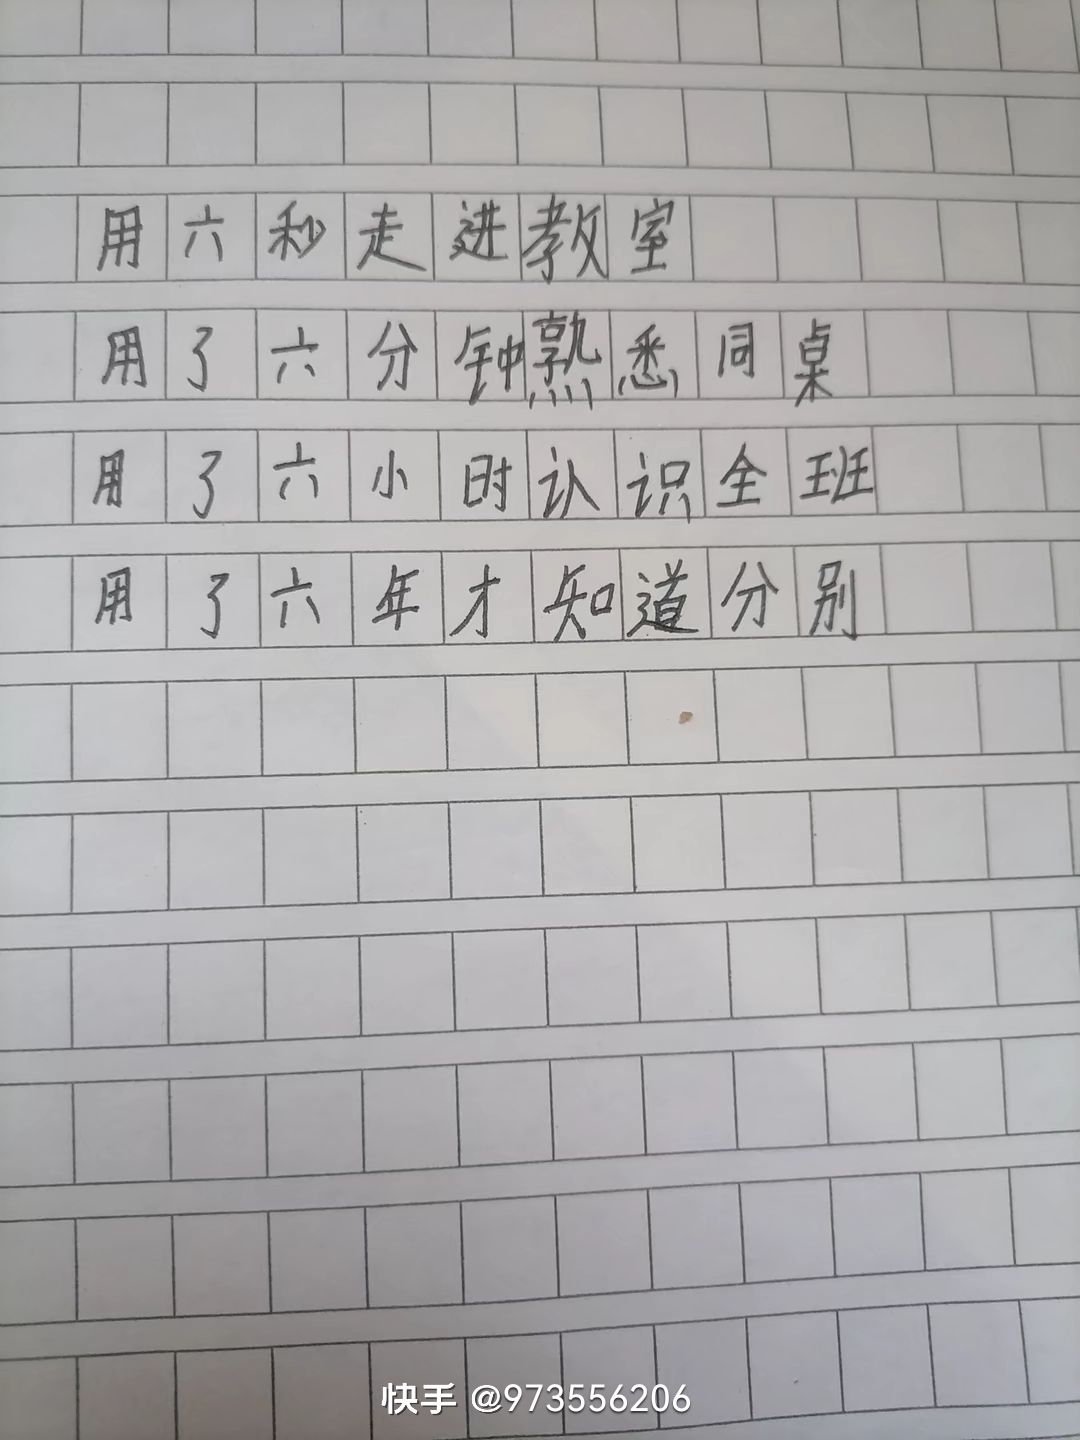 用六秒走进教室
用了六分钟熟悉同桌
用了六小时认识全班
用了六年才知道分别
快手 @973556206